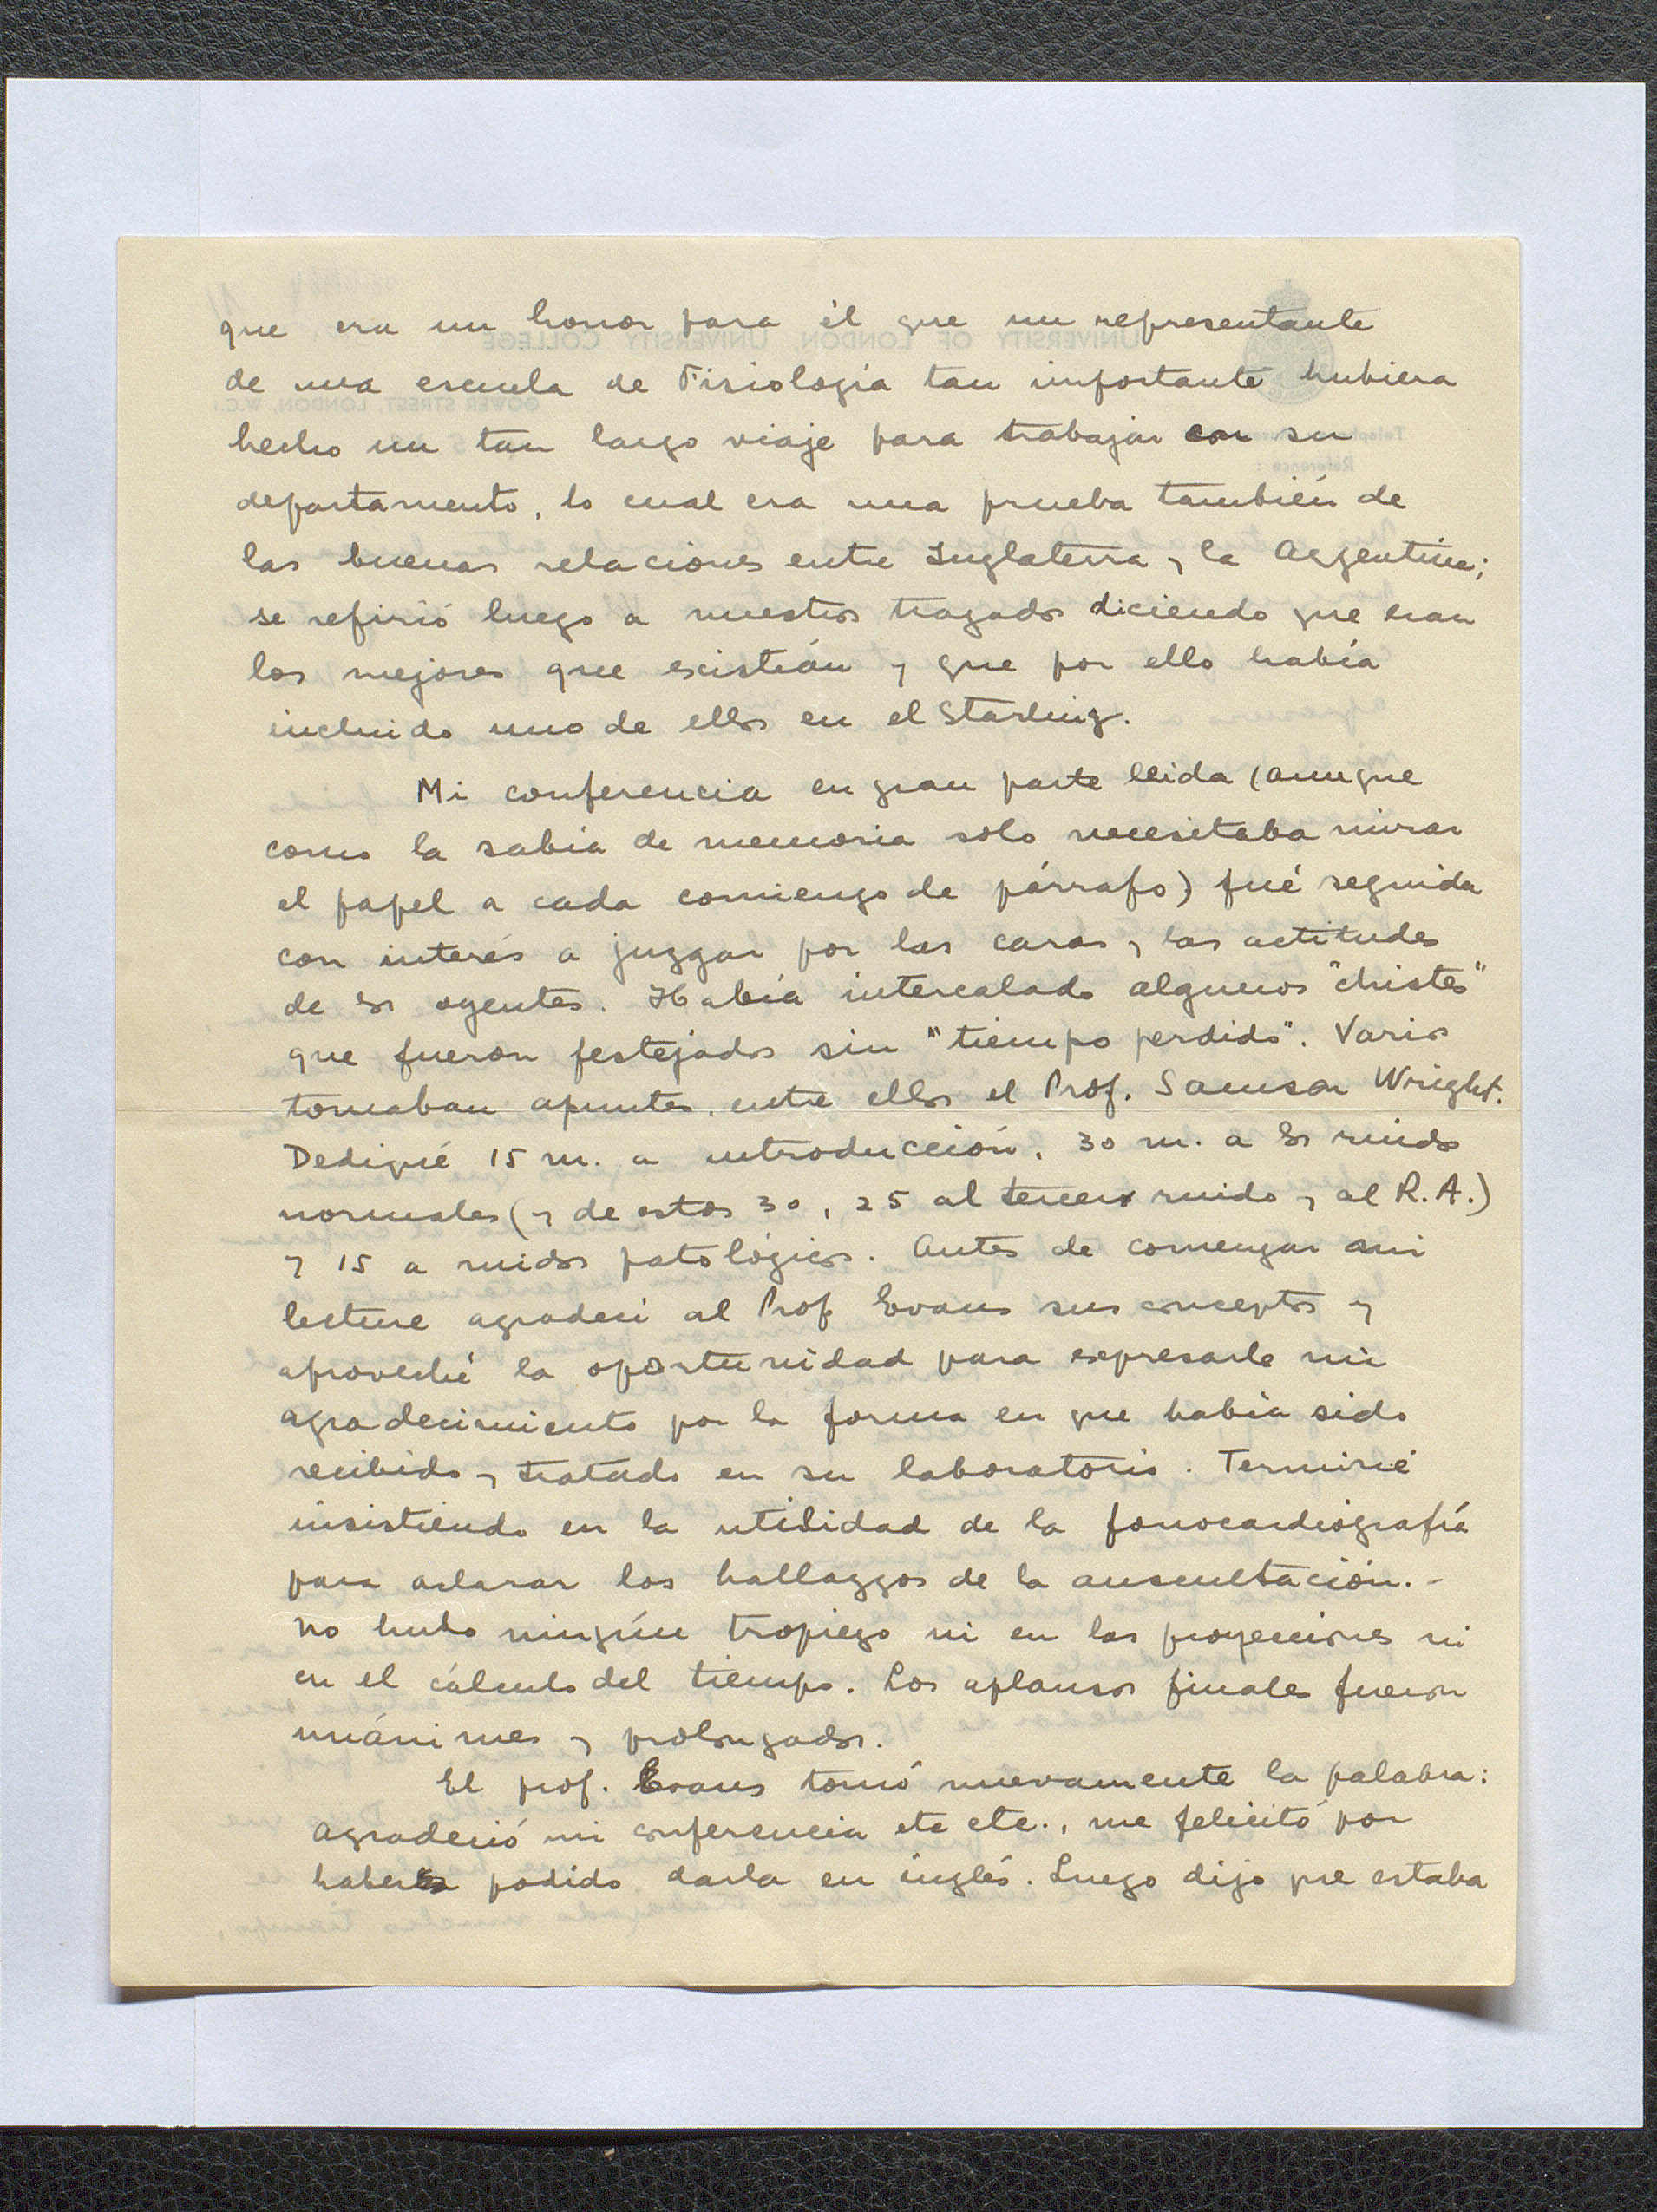 que era un honor para él que un representante
de una escuela de Fisiología tan importante hubiera
hecho un tan largo viaje para trabajar con su
departamento, lo cual era una prueba también de
las buenas relaciones entre Inglaterra y la Argentina;
se refirió luego a nuestros trazados diciendo que eran
los mejores que existían y que por ello había
incluido uno de ellos en el Starling.
Mi conferencia en gran parte leida (aunque
como la sabía de memoria solo necesitaba mirar
el papel a cada comienzo de párrafo) fué seguida
con interés a juzgar por las caras y las actitudes
de los oyentes. Había intercalado algunos "chistes"
que fueron festejados sin "tiempo perdido". Varios
tomaban apuntes, entre ellos el Prof. Samson Wright.
Dediqué 15 m. a introducción, 30 m. a los ruidos
normales (y de estos 30, 25 al tercer ruido y al R.A.)
y 15 a ruidos patológicos. Antes de comenzar mi
lecture agradecí al Prof Evans sus conceptos y
aproveché la oportunidad para expresarle mi
agradecimiento por la forma en que había sido
recibido y tratado en su laboratorio. Terminé
insistiendo en la utilidad de la fonocardiografía
para aclarar los hallazgos de la auscultación.-
No hubo ningún tropiezo ni en las proyecciones ni
en el cálculo del tiempo. Los aplausos finales fueron
unánimes y prolongados.
El prof. Evans tomó nuevamente la palabra:
agradeció mi conferencia etc etc., me felicitó por
haberla podido darla en inglés. Luego dijo que estaba